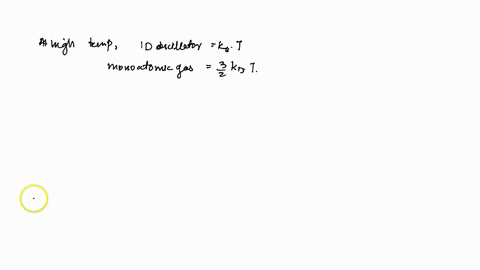 At high temp, 1D oscillator = k_B. T
monoatomic gas = 3/2 k_B T.